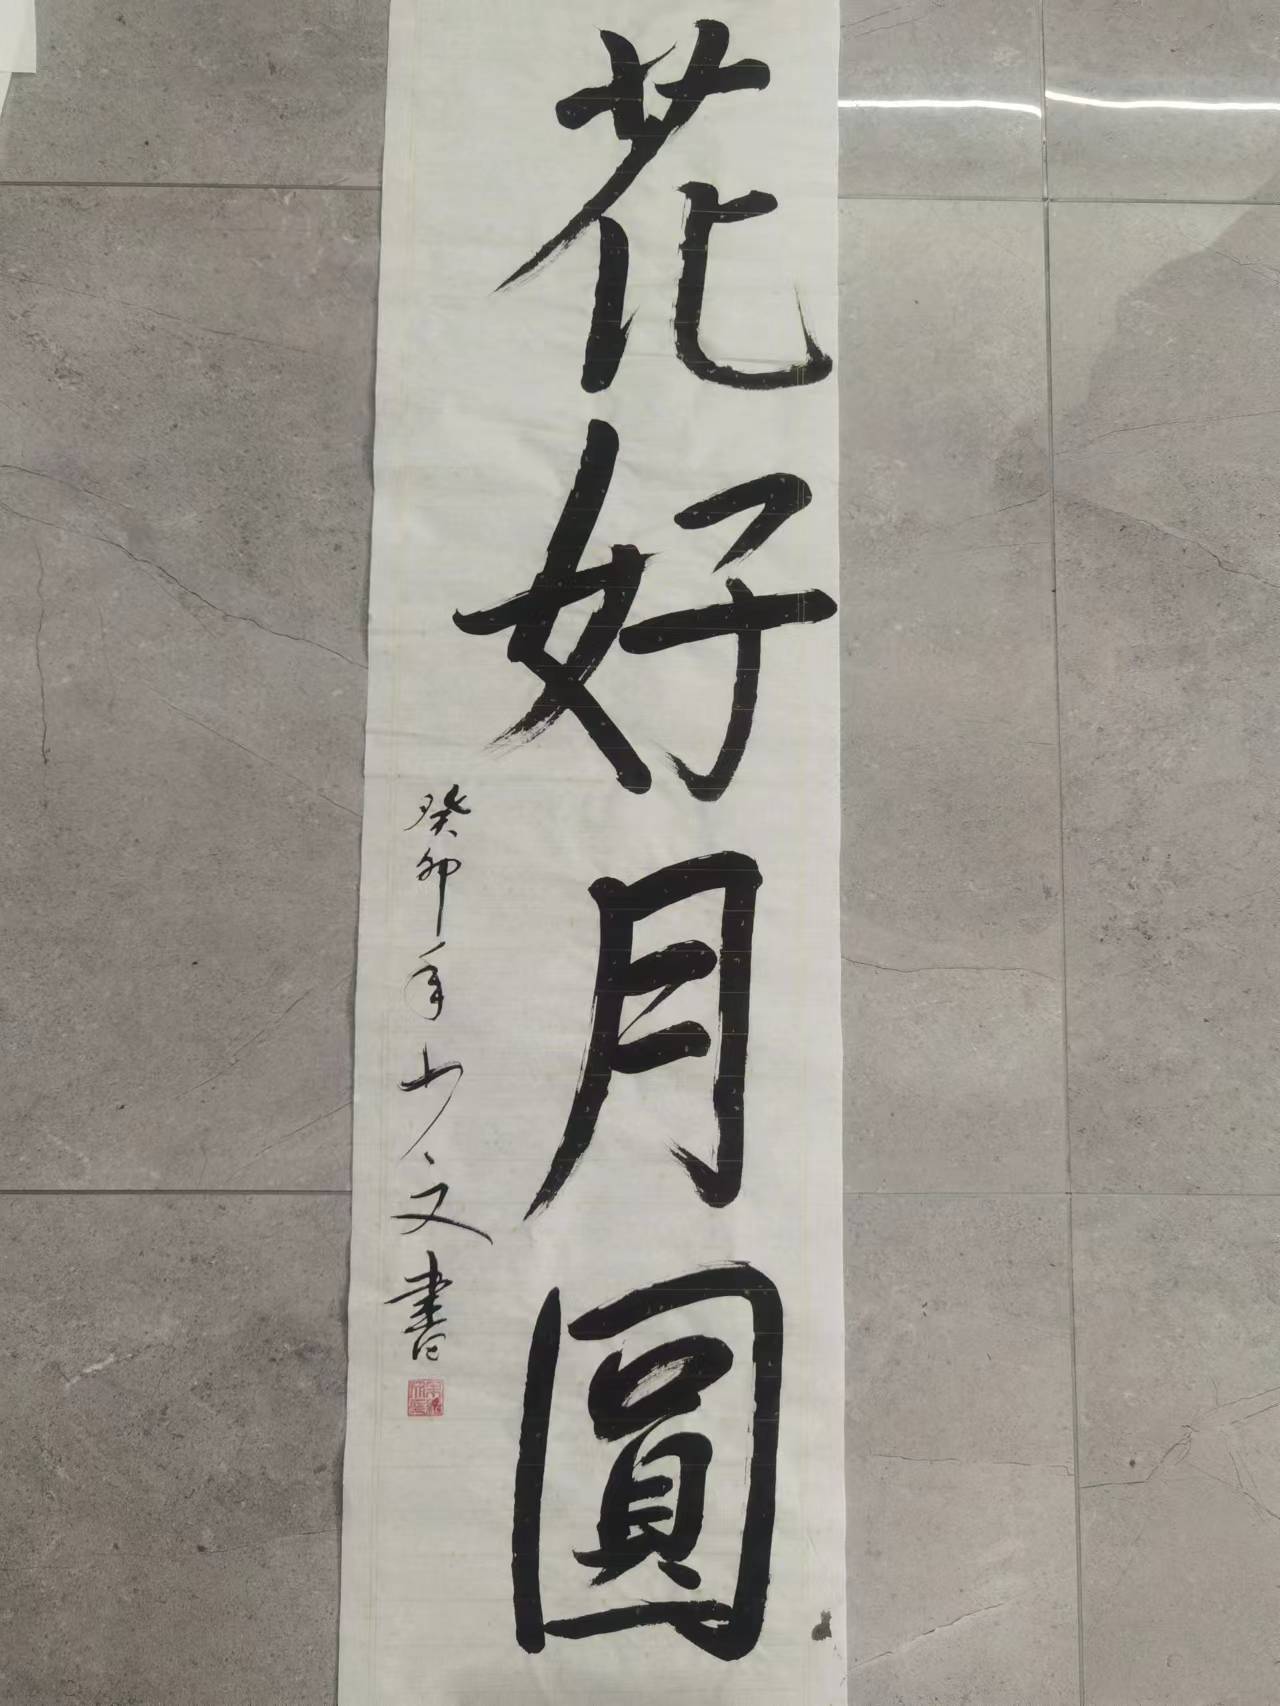 花好月圓
癸卯年少文書